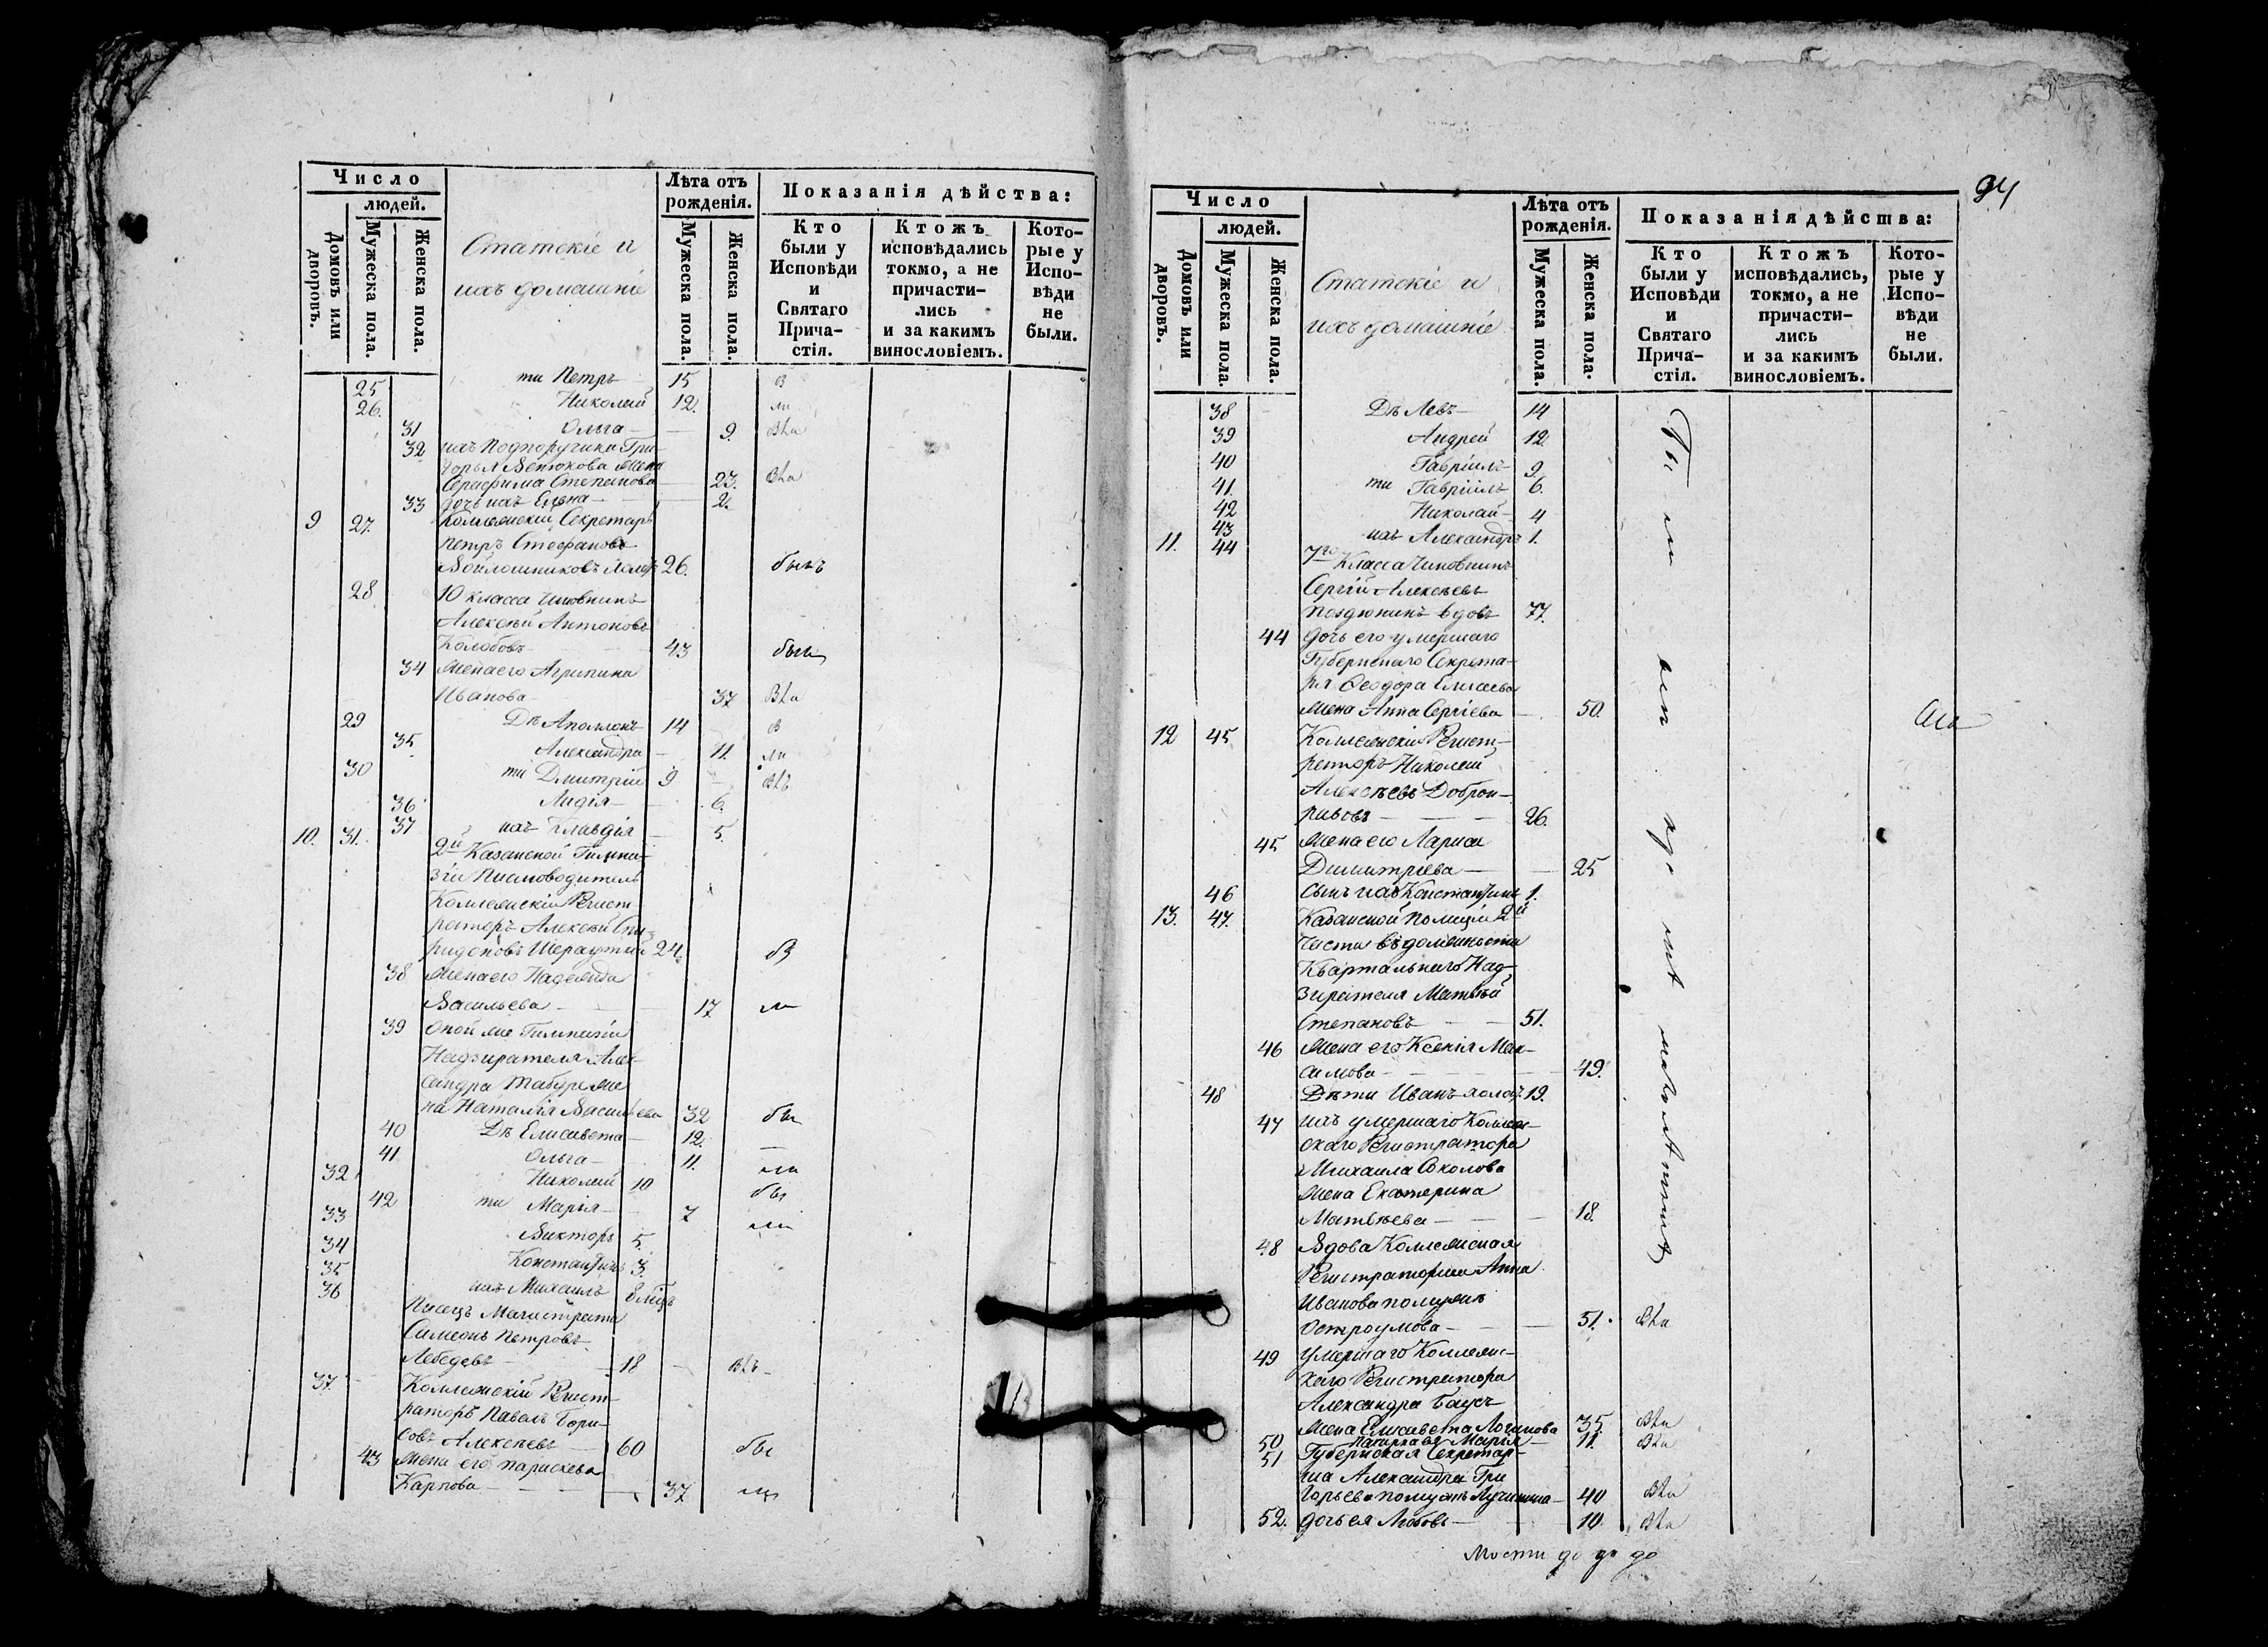 Число
людей.
Домовъ или дворовъ.
Мужеска пола.
Женска пола.
Статскіе и
ихъ домашніе
Лѣта отъ
рожденія.
Мужеска пола.
Женска пола.
Показанія дѣйства:
Кто
были у
Исповѣди
и
Святаго
Прича-
стія.
Ктожъ
исповѣдались
токмо, а не
причасти-
лись
и за какимъ
винословіемъ.
Кото-
рые у
Испо-
вѣди
не
были.
25 ти Петръ 15
26. Николай 12.
31 Ольга 9.
32 ихъ Подпоручика Гри-
горья жена
Серафима Степанова 23.
33 дочь ихъ Елена 2.
9 27. Коллежскій Секретарь
Петръ Стефановъ
Войлошниковъ холос 26. былъ
28 10 класса чиновникъ
Алексѣй Антоновъ
Колобовъ 43 были
34 Жена его Агрипина
Иванова 37
29 Дѣ Аполлонъ 14
35 Александра 11.
30 ти Димитрій 9
36 Лидія 6.
37 ихъ Клавдія 5.
10. 31. 2й Казанской Гимна-
зіи Писмоводитель
Коллежскій Регист
раторъ Алексѣй Спи-
ридоновъ 24.
38 Жена его Надежда
Васильева 17
39 Оной же Гимназіи
Надзирателя Алек-
сандра же
на Наталія Васильева 32 бы
40 Дѣ Елисавета 12.
41 Ольга 11. ли
32 Николай 10 бы
42 ти Марія 7 ли
33 Викторъ 5.
34 Константинъ 3.
35 ихъ Михаилъ 8 міцъ
36 Писецъ Магистрата
Симеонъ Петровъ
Лебедевъ 18
37. Коллежскій Регист-
раторъ Павелъ Бори-
совъ Алексѣевъ 60 бы
43 Жена его Параскева
Карпова 37 ли
94
Число
людей.
Домовъ или дворовъ.
Мужеска пола.
Женска пола.
Статскіе и
ихъ домашніе
Лѣта отъ
рожденія.
Мужеска пола.
Женска пола.
Показанія дѣйства:
Кто
были у
Исповѣди
и
Святаго
Прича-
стія.
Ктожъ
исповѣдались,
токмо, а не
причасти-
лись
и за какимъ
винословіемъ.
Кото-
рые у
Испо-
вѣди
не
были.
38 Дѣ Левъ 14
39 Андрей 12.
40 Гавріилъ 9
41. ти Гавріилъ 6.
42 Николай 4
43 ихъ Александръ 1.
11. 44 7го Класса Чиновникъ
Сергій Алексѣевъ
Поздюнинъ вдовъ 77.
44 дочь его умершаго
Губернскаго Секрета-
ря Ѳеодора Елисеева
жена Анна Сергіева 50.
12 45 Коллежскій Регист-
раторъ Николай
Алексѣевъ Доброн-
равовъ 26.
45 Жена его Лариса
Димитріева 25
46 Сынъ ихъ Константинъ 1.
13. 47. Казанской Полиціи 2й
Части въ должности
Квартальнаго Над-
зирателя Матвѣй
Степановъ 51.
46 Жена его Ксенія Мак-
симова 49.
48 Дѣти Иванъ холос 19.
47 ихъ умершаго Коллеж-
скаго Регистратора
Михаила Соколова
жена Екатерина
Матвѣева 18.
48 Вдова Коллежская
Регистраторша Анна
Иванова по мужѣ
Остроумова 51.
49 Умершаго Коллежс-
каго Регистратора
Александра
жена Елисавета Логинова 35.
50 Марія 11.
51 Губернская Секретар-
ша Александра Гри
горьева по мужѣ 40
52. дочь ея Любовь 10